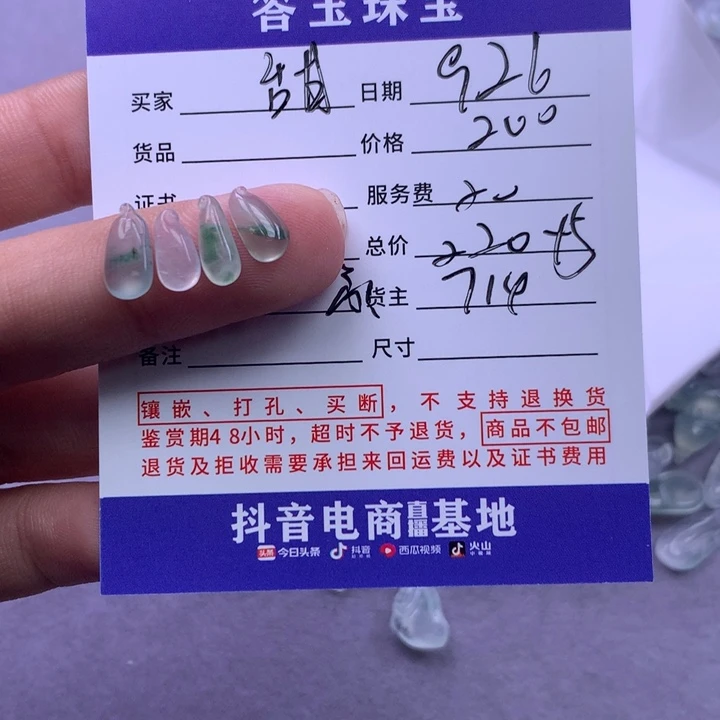 答玉珠宝
买家 喆 日期 926
货品 价格 200
证书 服务费 20
总价 220
货主 714
备注 尺寸
镶嵌、打孔、买断，不支持退换货
鉴赏期48小时，超时不予退货，商品不包邮
退货及拒收需要承担来回运费以及证书费用
抖音电商直播基地
头条 今日头条 抖音 西瓜视频 火山